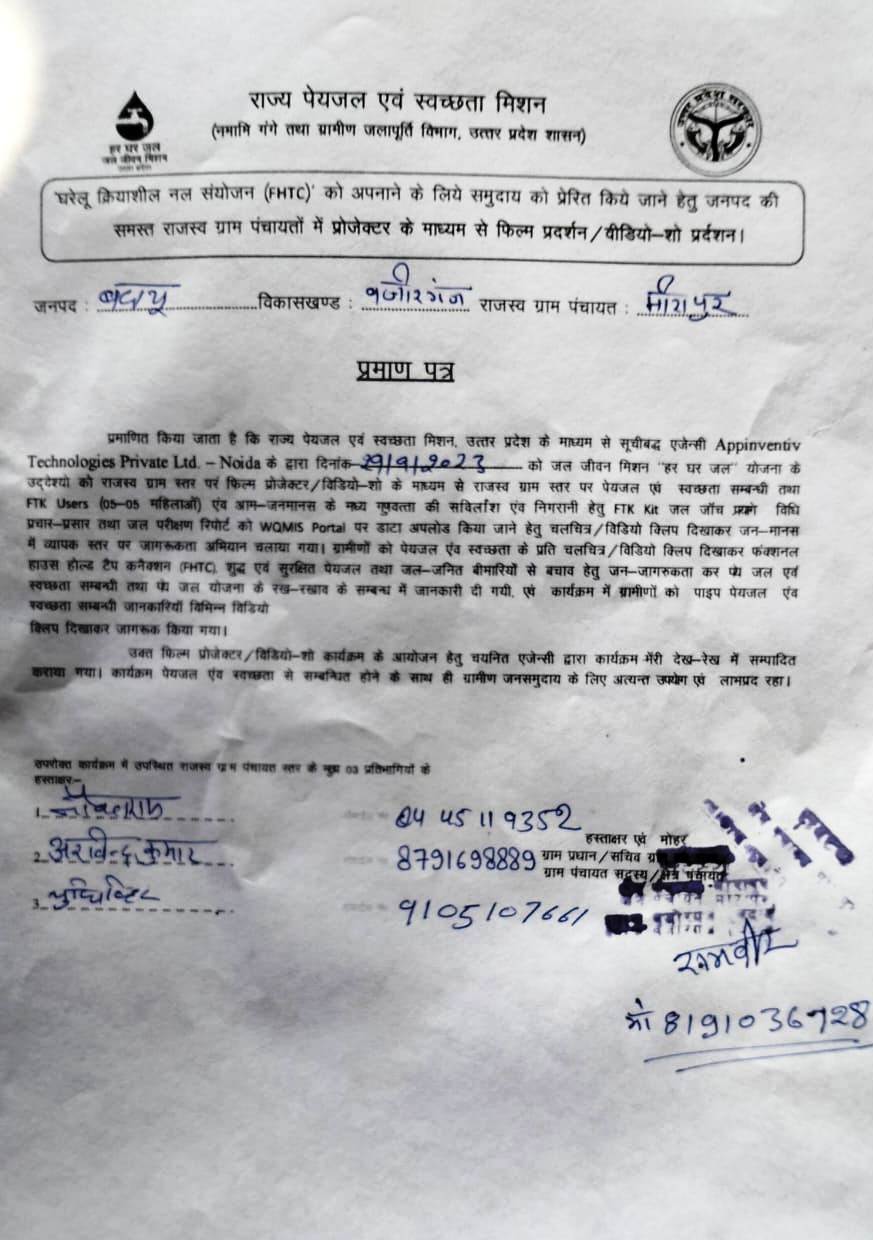 राज्य पेयजल एवं स्वच्छता मिशन
(नमामि गंगे तथा ग्रामीण जलापूर्ति विभाग, उत्तर प्रदेश शासन)
हर घर जल
जल जीवन मिशन
उत्तर प्रदेश सरकार
'घरेलू क्रियाशील नल संयोजन (FHTC)' को अपनाने के लिये समुदाय को प्रेरित किये जाने हेतु जनपद की
समस्त राजस्व ग्राम पंचायतों में प्रोजेक्टर के माध्यम से फिल्म प्रदर्शन/वीडियो–शो प्रर्दशन।
जनपद : बदायू विकासखण्ड : वजीरगंज राजस्व ग्राम पंचायत : मीरापुर
प्रमाण पत्र
प्रमाणित किया जाता है कि राज्य पेयजल एवं स्वच्छता मिशन, उत्तर प्रदेश के माध्यम से सूचीबद्ध एजेन्सी Appinventiv
Technologies Private Ltd. – Noida के द्वारा दिनांक 29/9/2023 को जल जीवन मिशन "हर घर जल" योजना के
उद्देश्यो को राजस्व ग्राम स्तर पर फिल्म प्रोजेक्टर/विडियो–शो के माध्यम से राजस्व ग्राम स्तर पर पेयजल एवं स्वच्छता सम्बन्धी तथा
FTK Users (05–05 महिलाओं) एंव आम–जनमानस के मध्य गुणवत्ता की सर्विलांश एंव निगरानी हेतु FTK Kit जल जाँच विधि
प्रचार–प्रसार तथा जल परीक्षण रिपोर्ट को WQMIS Portal पर डाटा अपलोड किया जाने हेतु चलचित्र/विडियो क्लिप दिखाकर जन–मानस
में व्यापक स्तर पर जागरूकता अभियान चलाया गया। ग्रामीणों को पेयजल एंव स्वच्छता के प्रति चलचित्र/विडियो क्लिप दिखाकर फंक्शनल
हाउस होल्ड टैप कनैक्शन (FHTC), शुद्ध एवं सुरक्षित पेयजल तथा जल–जनित बीमारियों से बचाव हेतु जन–जागरुकता कर पेय जल एवं
स्वच्छता सम्बन्धी तथा पेय जल योजना के रख–रखाव के सम्बन्ध में जानकारी दी गयी, एवं कार्यक्रम में ग्रामीणों को पाइप पेयजल एंव
स्वच्छता सम्बन्धी जानकारियॉ विभिन्न विडियो
क्लिप दिखाकर जागरूक किया गया।
उक्त फिल्म प्रोजेक्टर/विडियो–शो कार्यक्रम के आयोजन हेतु चयनित एजेन्सी द्वारा कार्यक्रम मेंरी देख–रेख में सम्पादित
कराया गया। कार्यक्रम पेयजल एंव स्वच्छता से सम्बन्धित होने के साथ ही ग्रामीण जनसमुदाय के लिए अत्यन्त उपयोग एवं लाभप्रद रहा।
उपरोक्त कार्यक्रम में उपस्थित राजस्व ग्राम पंचायत स्तर के मुख्य 03 प्रतिभागियों के
हस्ताक्षरः–
1.
2. अरविन्द्र कुमार 8791698889
3. 9105107661
हस्ताक्षर एवं मोहर
ग्राम प्रधान/सचिव
ग्राम पंचायत सदस्य/क्षेत्र पंचायत
रामवीर
मो 8191036728